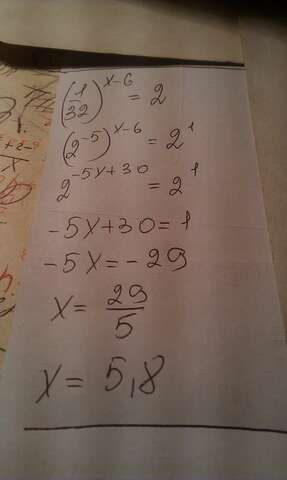 (1/32)^(x-6) = 2
(2^(-5))^(x-6) = 2^1
2^(-5x+30) = 2^1
-5x+30=1
-5x=-29
x= 29/5
x= 5,8